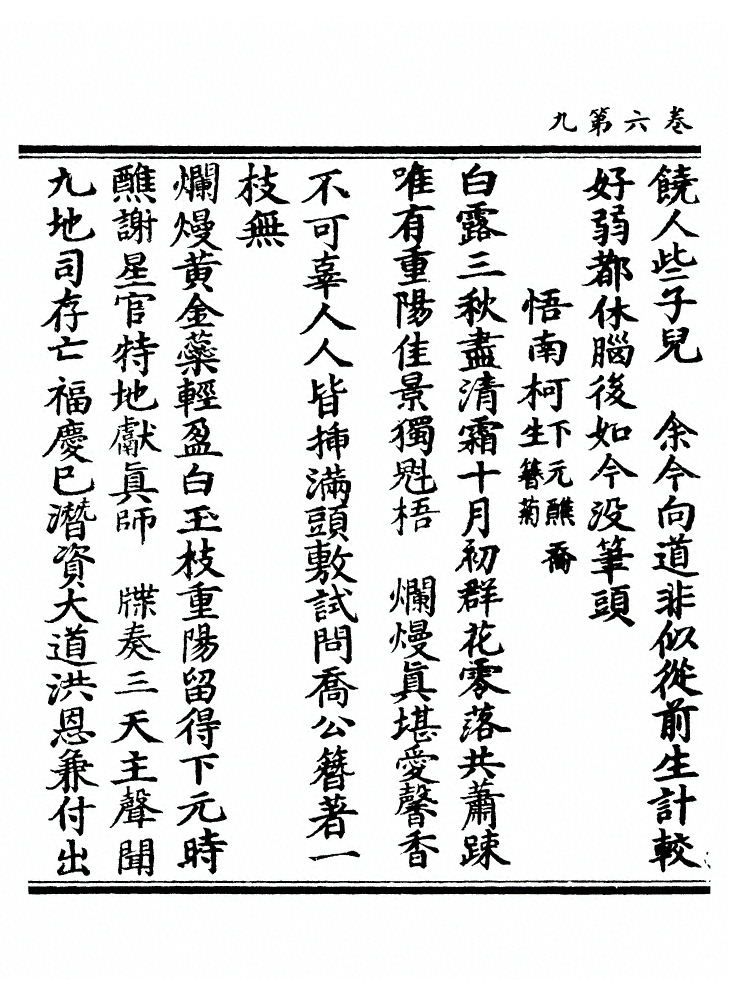 卷六第九
饒人些子兒　余今向道非似從前生計較
好弱都休腦後如今没筆頭
悟南柯下元醮喬生簪菊
白露三秋盡清霜十月初群花零落共蕭踈
唯有重陽佳景獨魁梧　爛熳眞堪愛馨香
不可辜人人皆揷滿頭敷試問喬公簪著一
枝無
爛熳黃金蘂輕盈白玉枝重陽留得下元時
醮謝星官特地獻眞師　牒奏三天主聲聞
九地司存亡福慶巳潛資大道洪恩兼付出